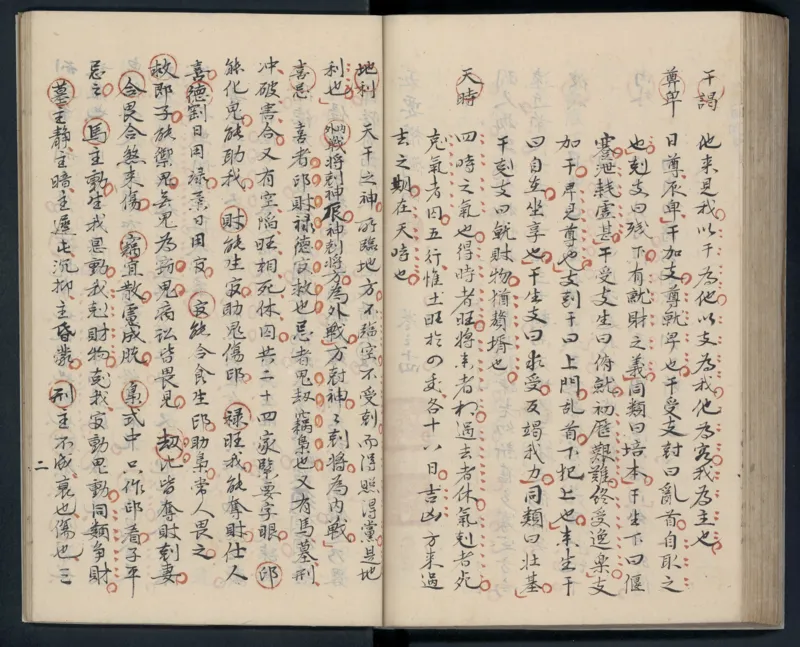 干謁 他来是我以干為他以支為我他為客我為主也
尊卑 日尊辰卑干加支尊就卑也干受支尅曰亂首自取之
也尅支曰殘下有就財之義同類曰培本干生下曰偃
蹇泄耗虛甚干受支生曰俯就初歷艱難終受逸樂支
加干卑見尊也支刻干曰上門乱首下犯上也来生干
曰自在坐享也干生支曰求受反竭我力同類曰壮基
干尅支曰就財物猶贅壻也
天時 四時之氣也得時者旺將来者相過去者休氣尅者死
克氣者囚五行惟土旺於四季各十八日吉凶方来過
去之期在天時也
地利 天干之神所臨地方不落空不受尅而得照得黨是地
利也 内外戰將尅神辰神尅將方為外戰方尅神神尅將為内戰
喜忌 喜者印財禄德官救也忌者鬼劫竊梟也又有馬墓刑
冲破害合又有空陷旺相死休囚共二十四家緊要字眼 印
能化鬼能助我 財能生官助鬼傷印 禄旺我能奪財仕人
喜德劉日用禄業日用官 官能合食生印助梟常人畏之
救即子能禦鬼無鬼為剥鬼病訟皆畏見 劫比皆奪財刻妻
合畏合煞来傷 竊宜散憂成脫 梟式中只作印看子平
忌之 馬主動生我恩動我尅財物克我官動鬼動同類爭財
墓主静主暗主遲屯沉抑主昏蒙 刑主不成衰也傷也三
二